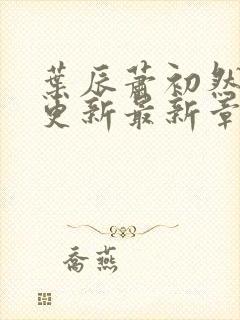 葉辰蕭初然
更新最新章
喬燕